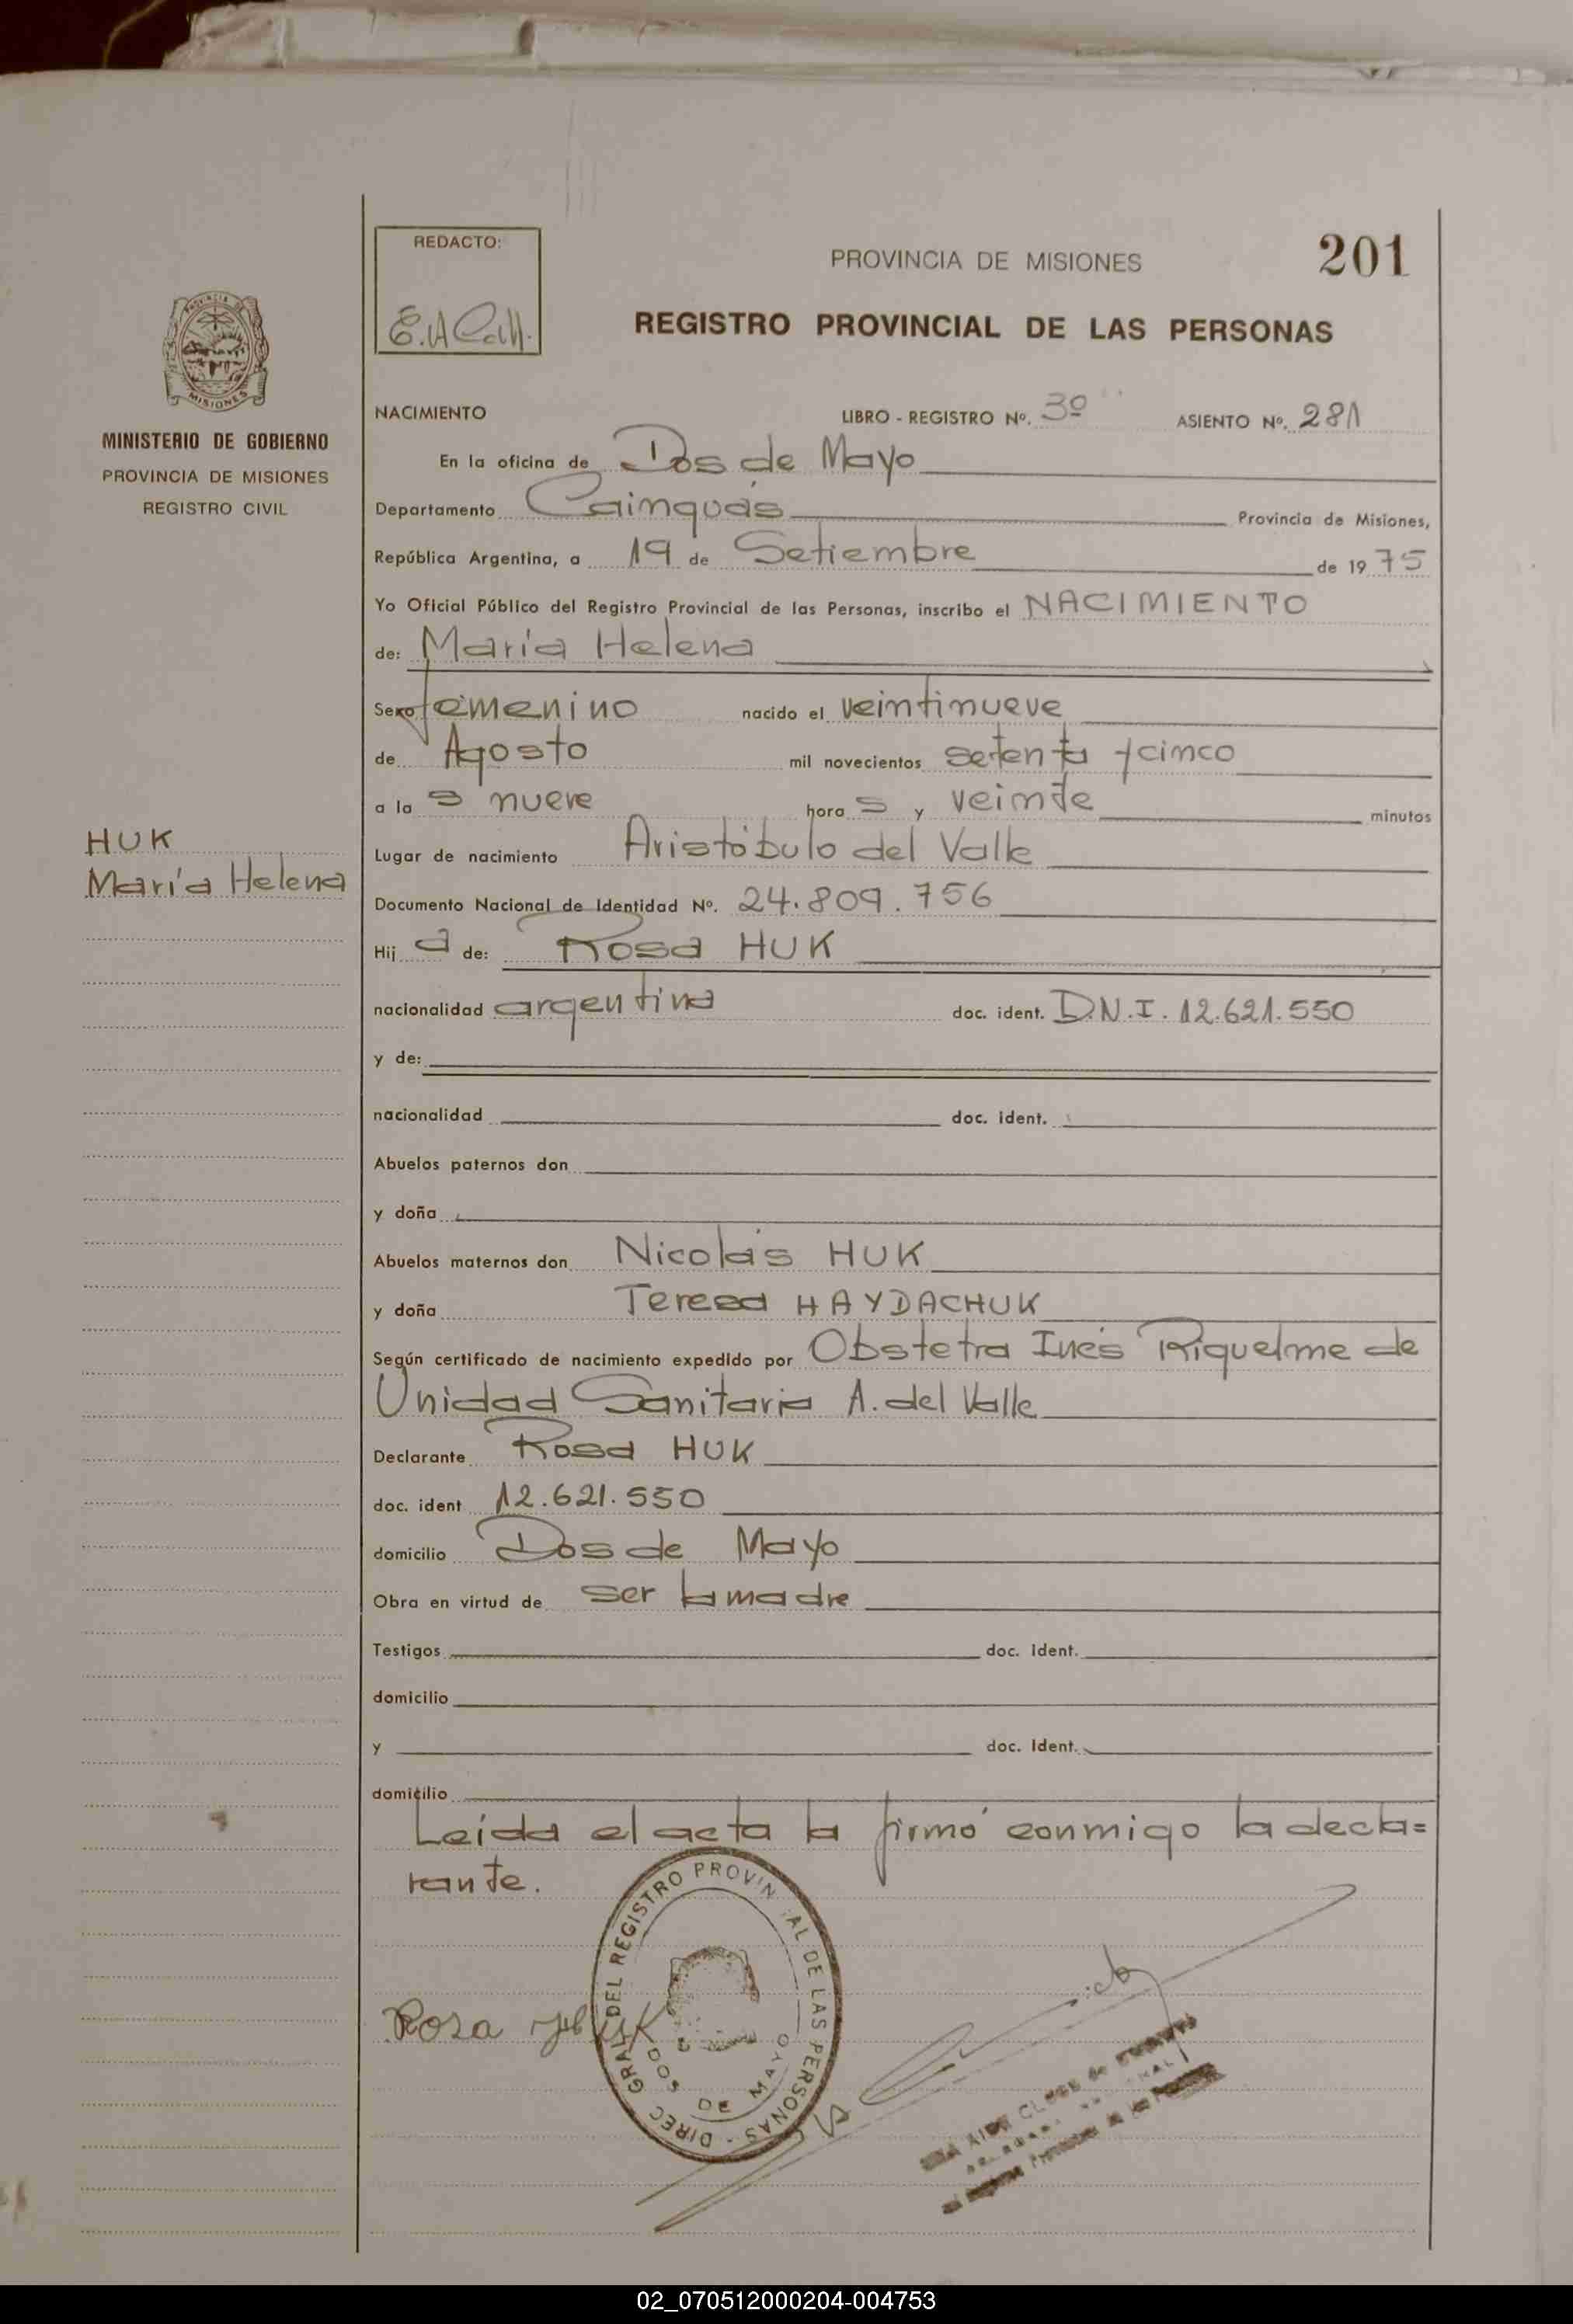 REDACTO:
E.A Call.
PROVINCIA DE MISIONES
201
REGISTRO PROVINCIAL DE LAS PERSONAS
PROVINCIA DE MISIONES
MINISTERIO DE GOBIERNO
PROVINCIA DE MISIONES
REGISTRO CIVIL
NACIMIENTO LIBRO - REGISTRO Nº. 3º ASIENTO Nº. 281
En la oficina de Dos de Mayo
Departamento Cainguás Provincia de Misiones,
República Argentina, a 19 de Setiembre de 1975
Yo Oficial Público del Registro Provincial de las Personas, inscribo el NACIMIENTO
de: María Helena
Sexo femenino nacido el veintinueve
de Agosto mil novecientos setenta y cinco
a las nueve horas y veinte minutos
HUK
María Helena
Lugar de nacimiento Aristóbulo del Valle
Documento Nacional de Identidad Nº. 24.809.756
Hija de: Rosa HUK
nacionalidad argentina doc. ident. D.N.I. 12.621.550
y de:
nacionalidad doc. ident.
Abuelos paternos don
y doña
Abuelos maternos don Nicolás HUK
y doña Teresa HAYDACHUK
Según certificado de nacimiento expedido por Obstetra Inés Riquelme de
Unidad Sanitaria A. del Valle
Declarante Rosa HUK
doc. ident 12.621.550
domicilio Dos de Mayo
Obra en virtud de ser la madre
Testigos doc. ident.
domicilio
y doc. Ident.
domicilio
Leída el acta la firmó conmigo la decla=
rante.
DIREC GRAL DEL REGISTRO PROVINCIAL DE LAS PERSONAS -
DOS DE MAYO
Rosa Huk
02_070512000204-004753